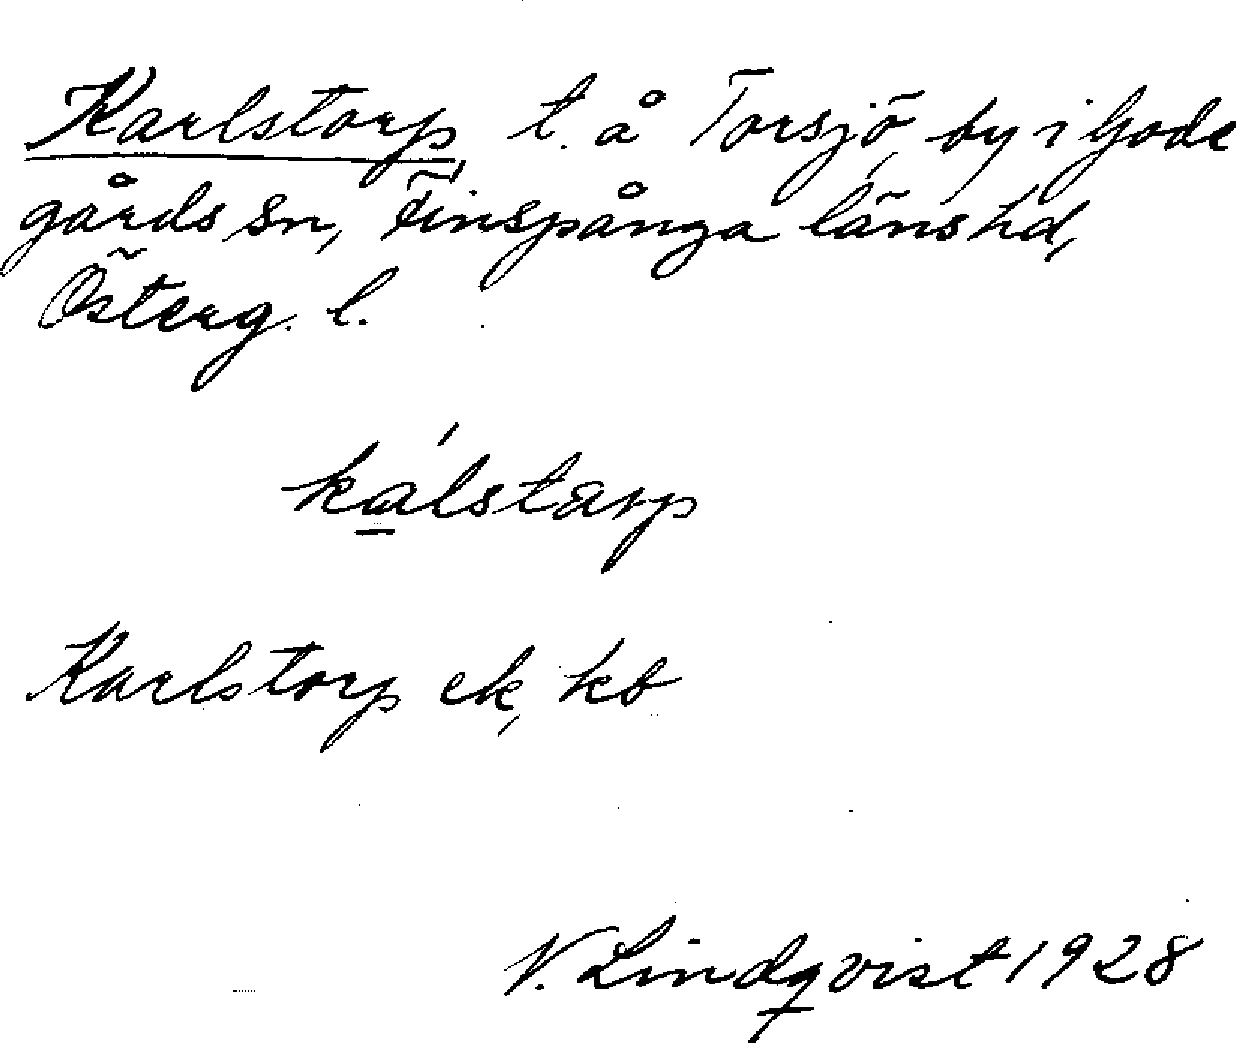 Karlstorp, t. å Torsjö, by i Gode
gårds sn, Finspånga läns hd,
Österg. l.
kálstarp
Karlstorp ek, kb
N. Lindqvist 1928